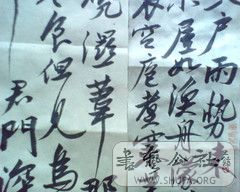 入戶雨勢
小屋如漁舟
裏空庖煮寒
燒濕葦那
寒食但見烏
君門深
書藝公社
WWW.SHUFA.ORG